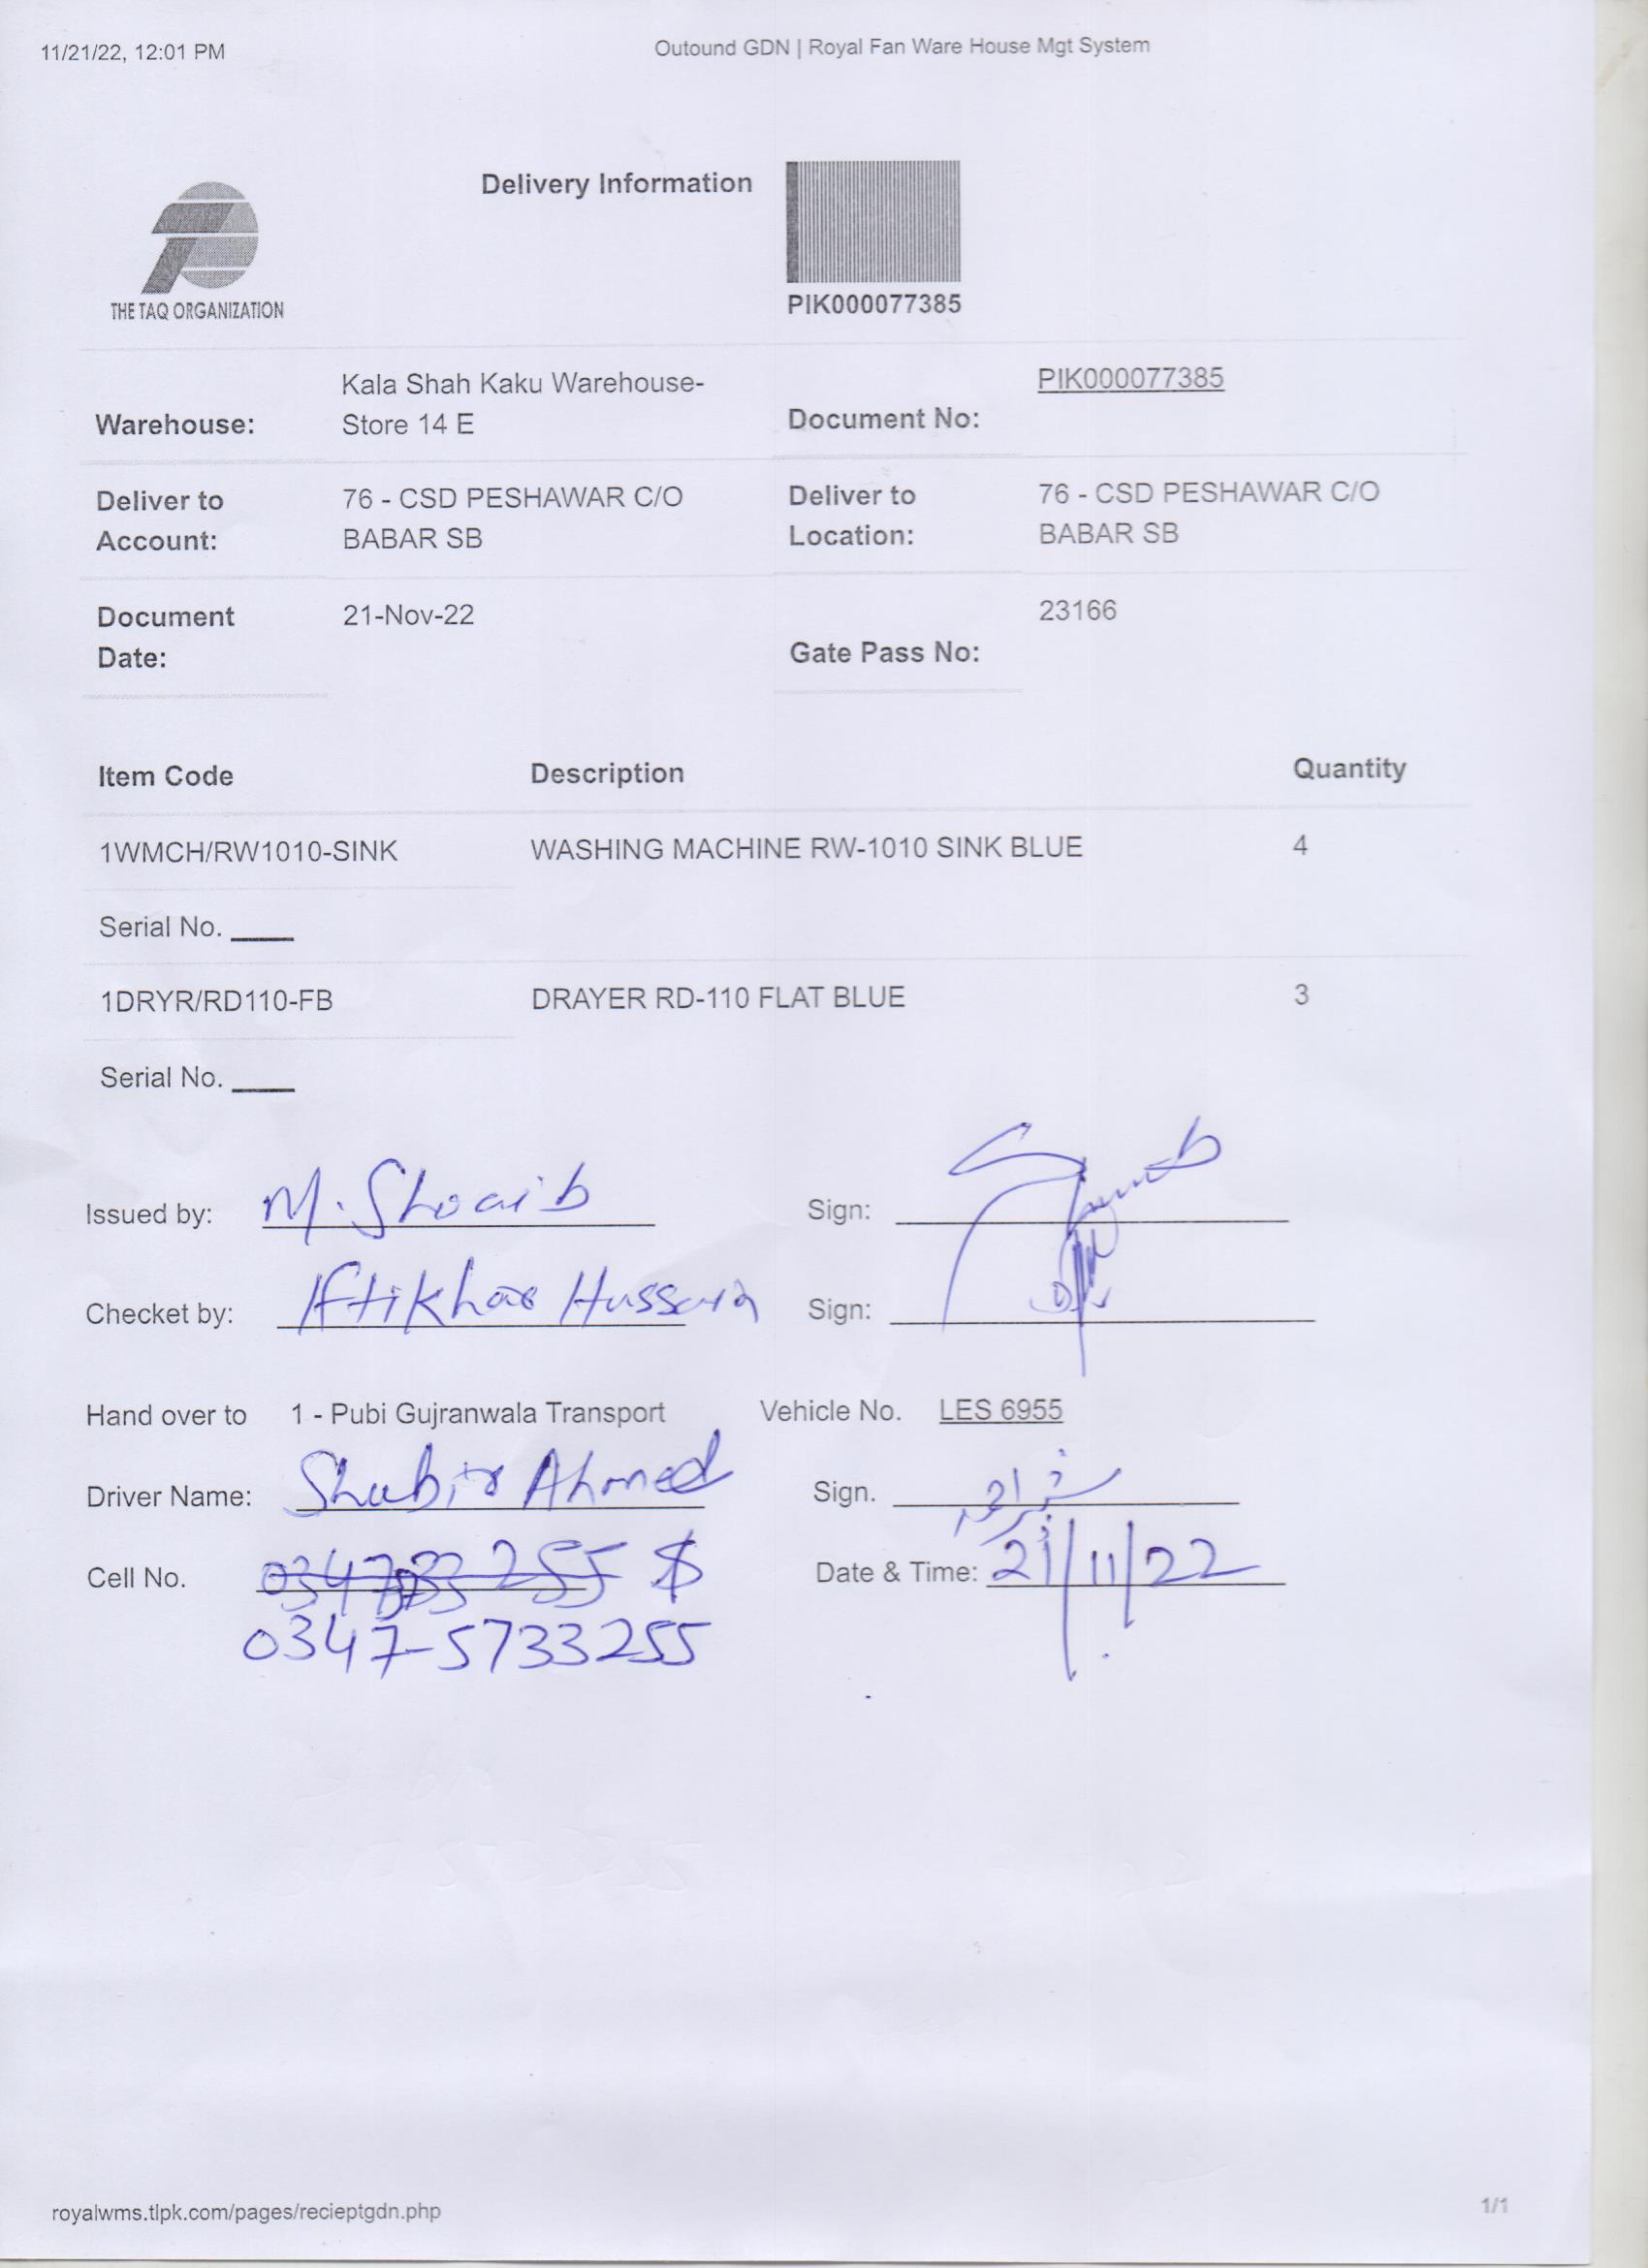 11/21/22, 12:01 PM
Outound GDN | Royal Fan Ware House Mgt System
THE TAQ ORGANIZATION
Delivery Information
PIK000077385
Warehouse: Kala Shah Kaku Warehouse-
Store 14 E
Document No: PIK000077385
Deliver to
Account:
76 - CSD PESHAWAR C/O
BABAR SB
Deliver to
Location:
76 - CSD PESHAWAR C/O
BABAR SB
Document
Date:
21-Nov-22
Gate Pass No: 23166
Item Code Description Quantity
1WMCH/RW1010-SINK WASHING MACHINE RW-1010 SINK BLUE 4
Serial No.
1DRYR/RD110-FB DRAYER RD-110 FLAT BLUE 3
Serial No.
Issued by: M. Shoaib Sign:
Checket by: Iftikhar Hussain Sign:
Hand over to 1 - Pubi Gujranwala Transport Vehicle No. LES 6955
Driver Name: Shabir Ahmed Sign.
Cell No. Date & Time: 21/11/22
0347-5733255
royalwms.tlpk.com/pages/recieptgdn.php
1/1